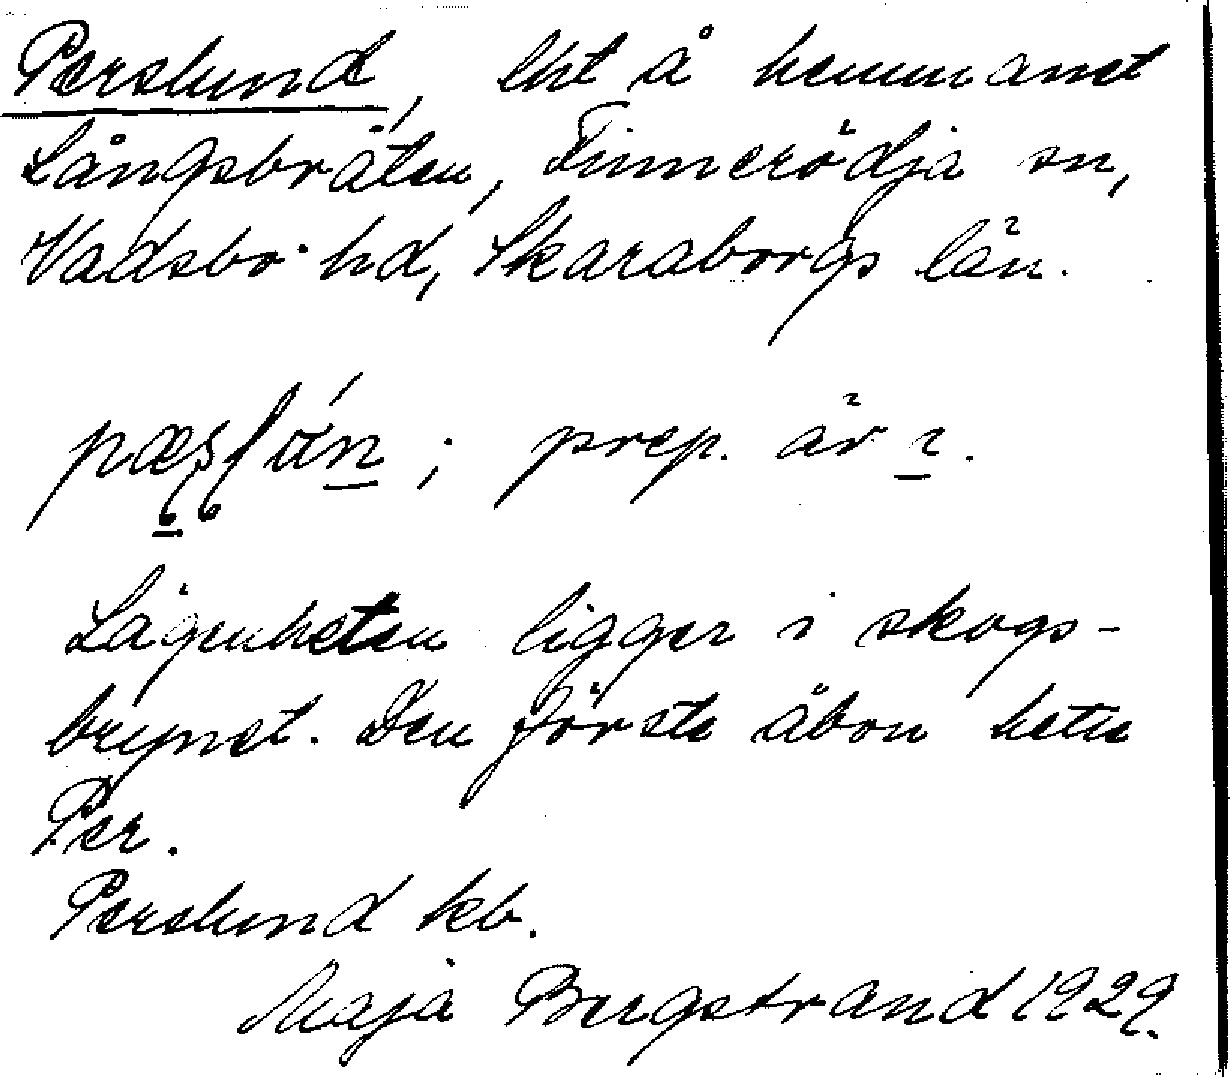 Perslund, lht å hemmanet
Långsbråten, Finnerödja sn,
Vadsbo hd, Skaraborgs län.
; prep. är ı.
Lägenheten ligger i skogs-
brynet. Den förste åbon hette
Per.
Perslund kb.
Maja Bergstrand 1929.